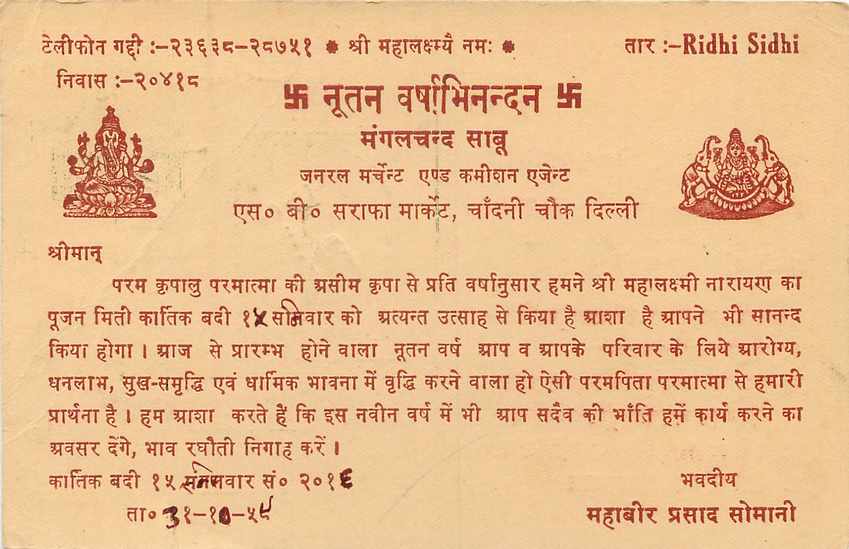 टेलीफोन गद्दी :–२३६३८–२८७५१ * श्री महालक्ष्म्यै नमः * तार :–Ridhi Sidhi
निवास :–२०४१८
卐 नूतन वर्षाभिनन्दन 卐
मंगलचन्द साबू
जनरल मर्चेन्ट एण्ड कमीशन एजेन्ट
एस० बी० सराफा मार्केट, चाँदनी चौक दिल्ली
श्रीमान्
परम कृपालु परमात्मा की असीम कृपा से प्रति वर्षानुसार हमने श्री महालक्ष्मी नारायण का
पूजन मिती कार्तिक बदी १५ सनिवार को अत्यन्त उत्साह से किया है आशा है आपने भी सानन्द
किया होगा । आज से प्रारम्भ होने वाला नूतन वर्ष आप व आपके परिवार के लिये आरोग्य,
धनलाभ, सुख-समृद्धि एवं धार्मिक भावना में वृद्धि करने वाला हो ऐसी परमपिता परमात्मा से हमारी
प्रार्थना है । हम आशा करते हैं कि इस नवीन वर्ष में भी आप सदैव की भाँति हमें कार्य करने का
अवसर देंगे, भाव रघौती निगाह करें ।
कार्तिक बदी १५ सनिवार सं० २०१६ भवदीय
ता० 31–10–५९ महाबीर प्रसाद सोमानी